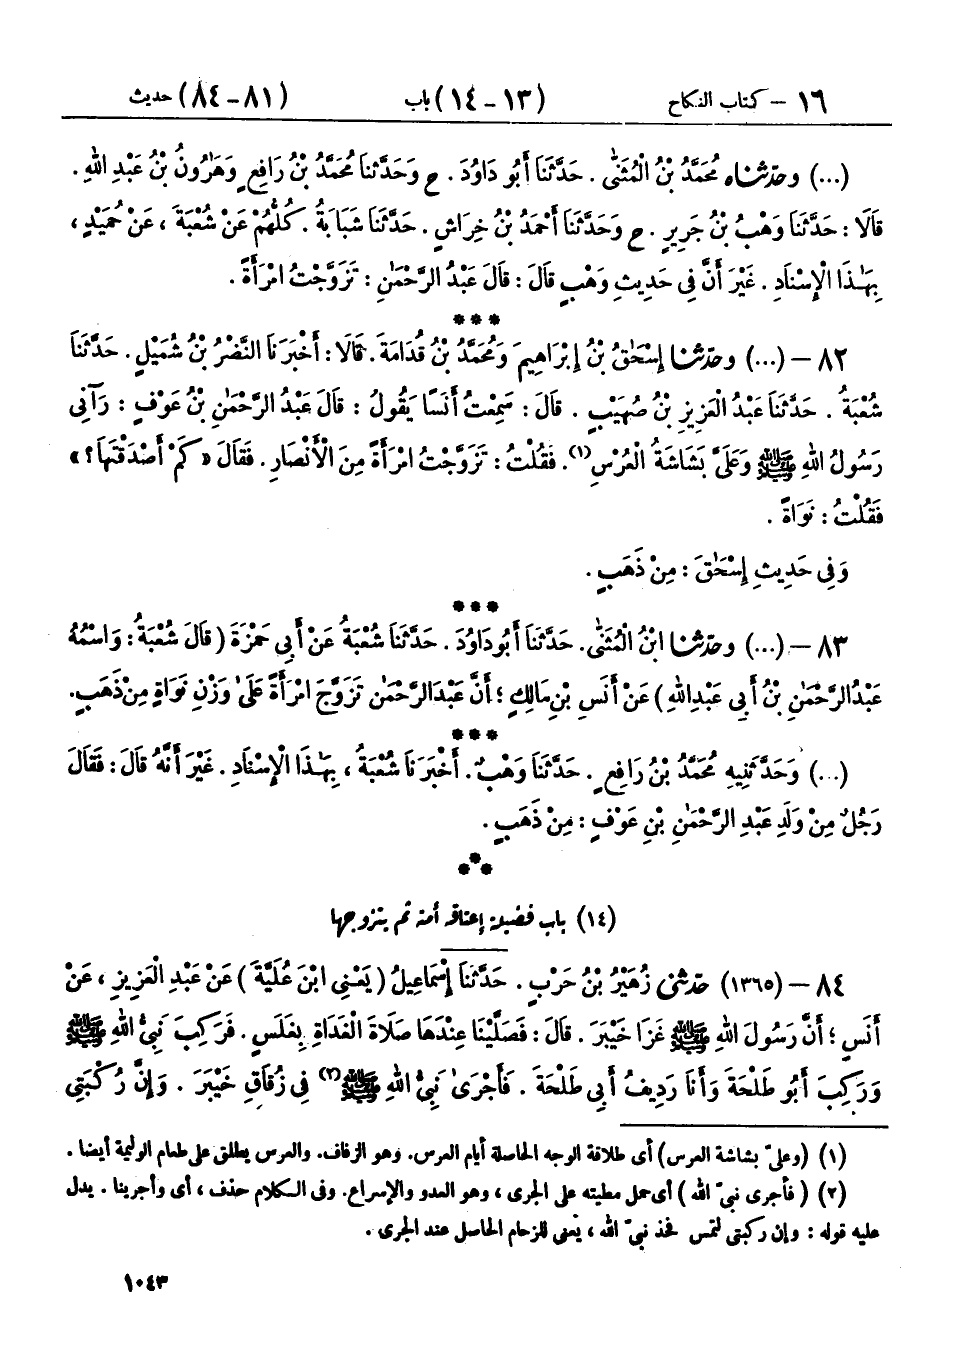 ١٦ – كتاب النكاح (١٣ – ١٤) باب (٨١ – ٨٤) حديث
(...) وحدّثناه مُحَمَّدُ بْنُ الْمُثَنَّى . حَدَّثَنَا أَبُو دَاوُدَ . ح وَحَدَّثَنَا مُحَمَّدُ بْنُ رَافِعٍ وَهَٰرُونُ بْنُ عَبْدِ اللهِ .
قَالَا : حَدَّثَنَا وَهْبُ بْنُ جَرِيرٍ . ح وَحَدَّثَنَا أَحْمَدُ بْنُ خِرَاشٍ . حَدَّثَنَا شَبَابَةُ . كُلُّهُمْ عَنْ شُعْبَةَ ، عَنْ حُمَيْدٍ ،
بِهَٰذَا الْإِسْنَادِ . غَيْرَ أَنَّ فِي حَدِيثِ وَهْبٍ قَالَ : قَالَ عَبْدُ الرَّحْمَٰنِ : تَزَوَّجْتُ امْرَأَةً .
***
٨٢ – (...) وحدّثنا إِسْحَٰقُ بْنُ إِبْرَاهِيمَ وَمُحَمَّدُ بْنُ قُدَامَةَ . قَالَا : أَخْبَرَنَا النَّضْرُ بْنُ شُمَيْلٍ . حَدَّثَنَا
شُعْبَةُ . حَدَّثَنَا عَبْدُ الْعَزِيزِ بْنُ صُهَيْبٍ . قَالَ : سَمِعْتُ أَنَسًا يَقُولُ : قَالَ عَبْدُ الرَّحْمَٰنِ بْنُ عَوْفٍ : رَآنِي
رَسُولُ اللهِ ﷺ وَعَلَيَّ بَشَاشَةُ الْعُرْسِ(١). فَقُلْتُ : تَزَوَّجْتُ امْرَأَةً مِنَ الْأَنْصَارِ . فَقَالَ « كَمْ أَصْدَقْتَهَا ؟ »
فَقُلْتُ : نَوَاةً .
وَفِي حَدِيثِ إِسْحَٰقَ : مِنْ ذَهَبٍ .
***
٨٣ – (...) وحدّثنا ابْنُ الْمُثَنَّى . حَدَّثَنَا أَبُو دَاوُدَ . حَدَّثَنَا شُعْبَةُ عَنْ أَبِي حَمْزَةَ ( قَالَ شُعْبَةُ : وَاسْمُهُ
عَبْدُ الرَّحْمَٰنِ بْنُ أَبِي عَبْدِ اللهِ ) عَنْ أَنَسِ بْنِ مَالِكٍ ؛ أَنَّ عَبْدَ الرَّحْمَٰنِ تَزَوَّجَ امْرَأَةً عَلَىٰ وَزْنِ نَوَاةٍ مِنْ ذَهَبٍ.
***
(...) وَحَدَّثَنِيهِ مُحَمَّدُ بْنُ رَافِعٍ . حَدَّثَنَا وَهْبٌ . أَخْبَرَنَا شُعْبَةُ ، بِهَٰذَا الْإِسْنَادِ . غَيْرَ أَنَّهُ قَالَ : فَقَالَ
رَجُلٌ مِنْ وَلَدِ عَبْدِ الرَّحْمَٰنِ بْنِ عَوْفٍ : مِنْ ذَهَبٍ .
***
(١٤) باب فضيلة إعتاقه أمته ثم يتزوجها
٨٤ – (١٣٦٥) حدّثني زُهَيْرُ بْنُ حَرْبٍ . حَدَّثَنَا إِسْمَاعِيلُ ( يَعْنِي ابْنَ عُلَيَّةَ ) عَنْ عَبْدِ الْعَزِيزِ ، عَنْ
أَنَسٍ ؛ أَنَّ رَسُولَ اللهِ ﷺ غَزَا خَيْبَرَ . قَالَ : فَصَلَّيْنَا عِنْدَهَا صَلَاةَ الْغَدَاةِ بِغَلَسٍ . فَرَكِبَ نَبِيُّ اللهِ ﷺ
وَرَكِبَ أَبُو طَلْحَةَ وَأَنَا رَدِيفُ أَبِي طَلْحَةَ . فَأَجْرَىٰ نَبِيُّ اللهِ ﷺ(٢) فِي زُقَاقِ خَيْبَرَ . وَإِنَّ رُكْبَتِي
(١) (وعليّ بشاشة العرس) أى طلاقة الوجه الحاصلة أيام العرس. وهو الزفاف. والعرس يطلق على طعام الوليمة أيضا .
(٢) ( فأجرى نبيّ الله ) أى حمل مطيته على الجرى ، وهو العدو والإسراع. وفى الكلام حذف ، أى وأجرينا . يدل
عليه قوله : وإن ركبتى لتمس فخذ نبيّ الله ، يعنى للزحام الحاصل عند الجرى .
١٠٤٣